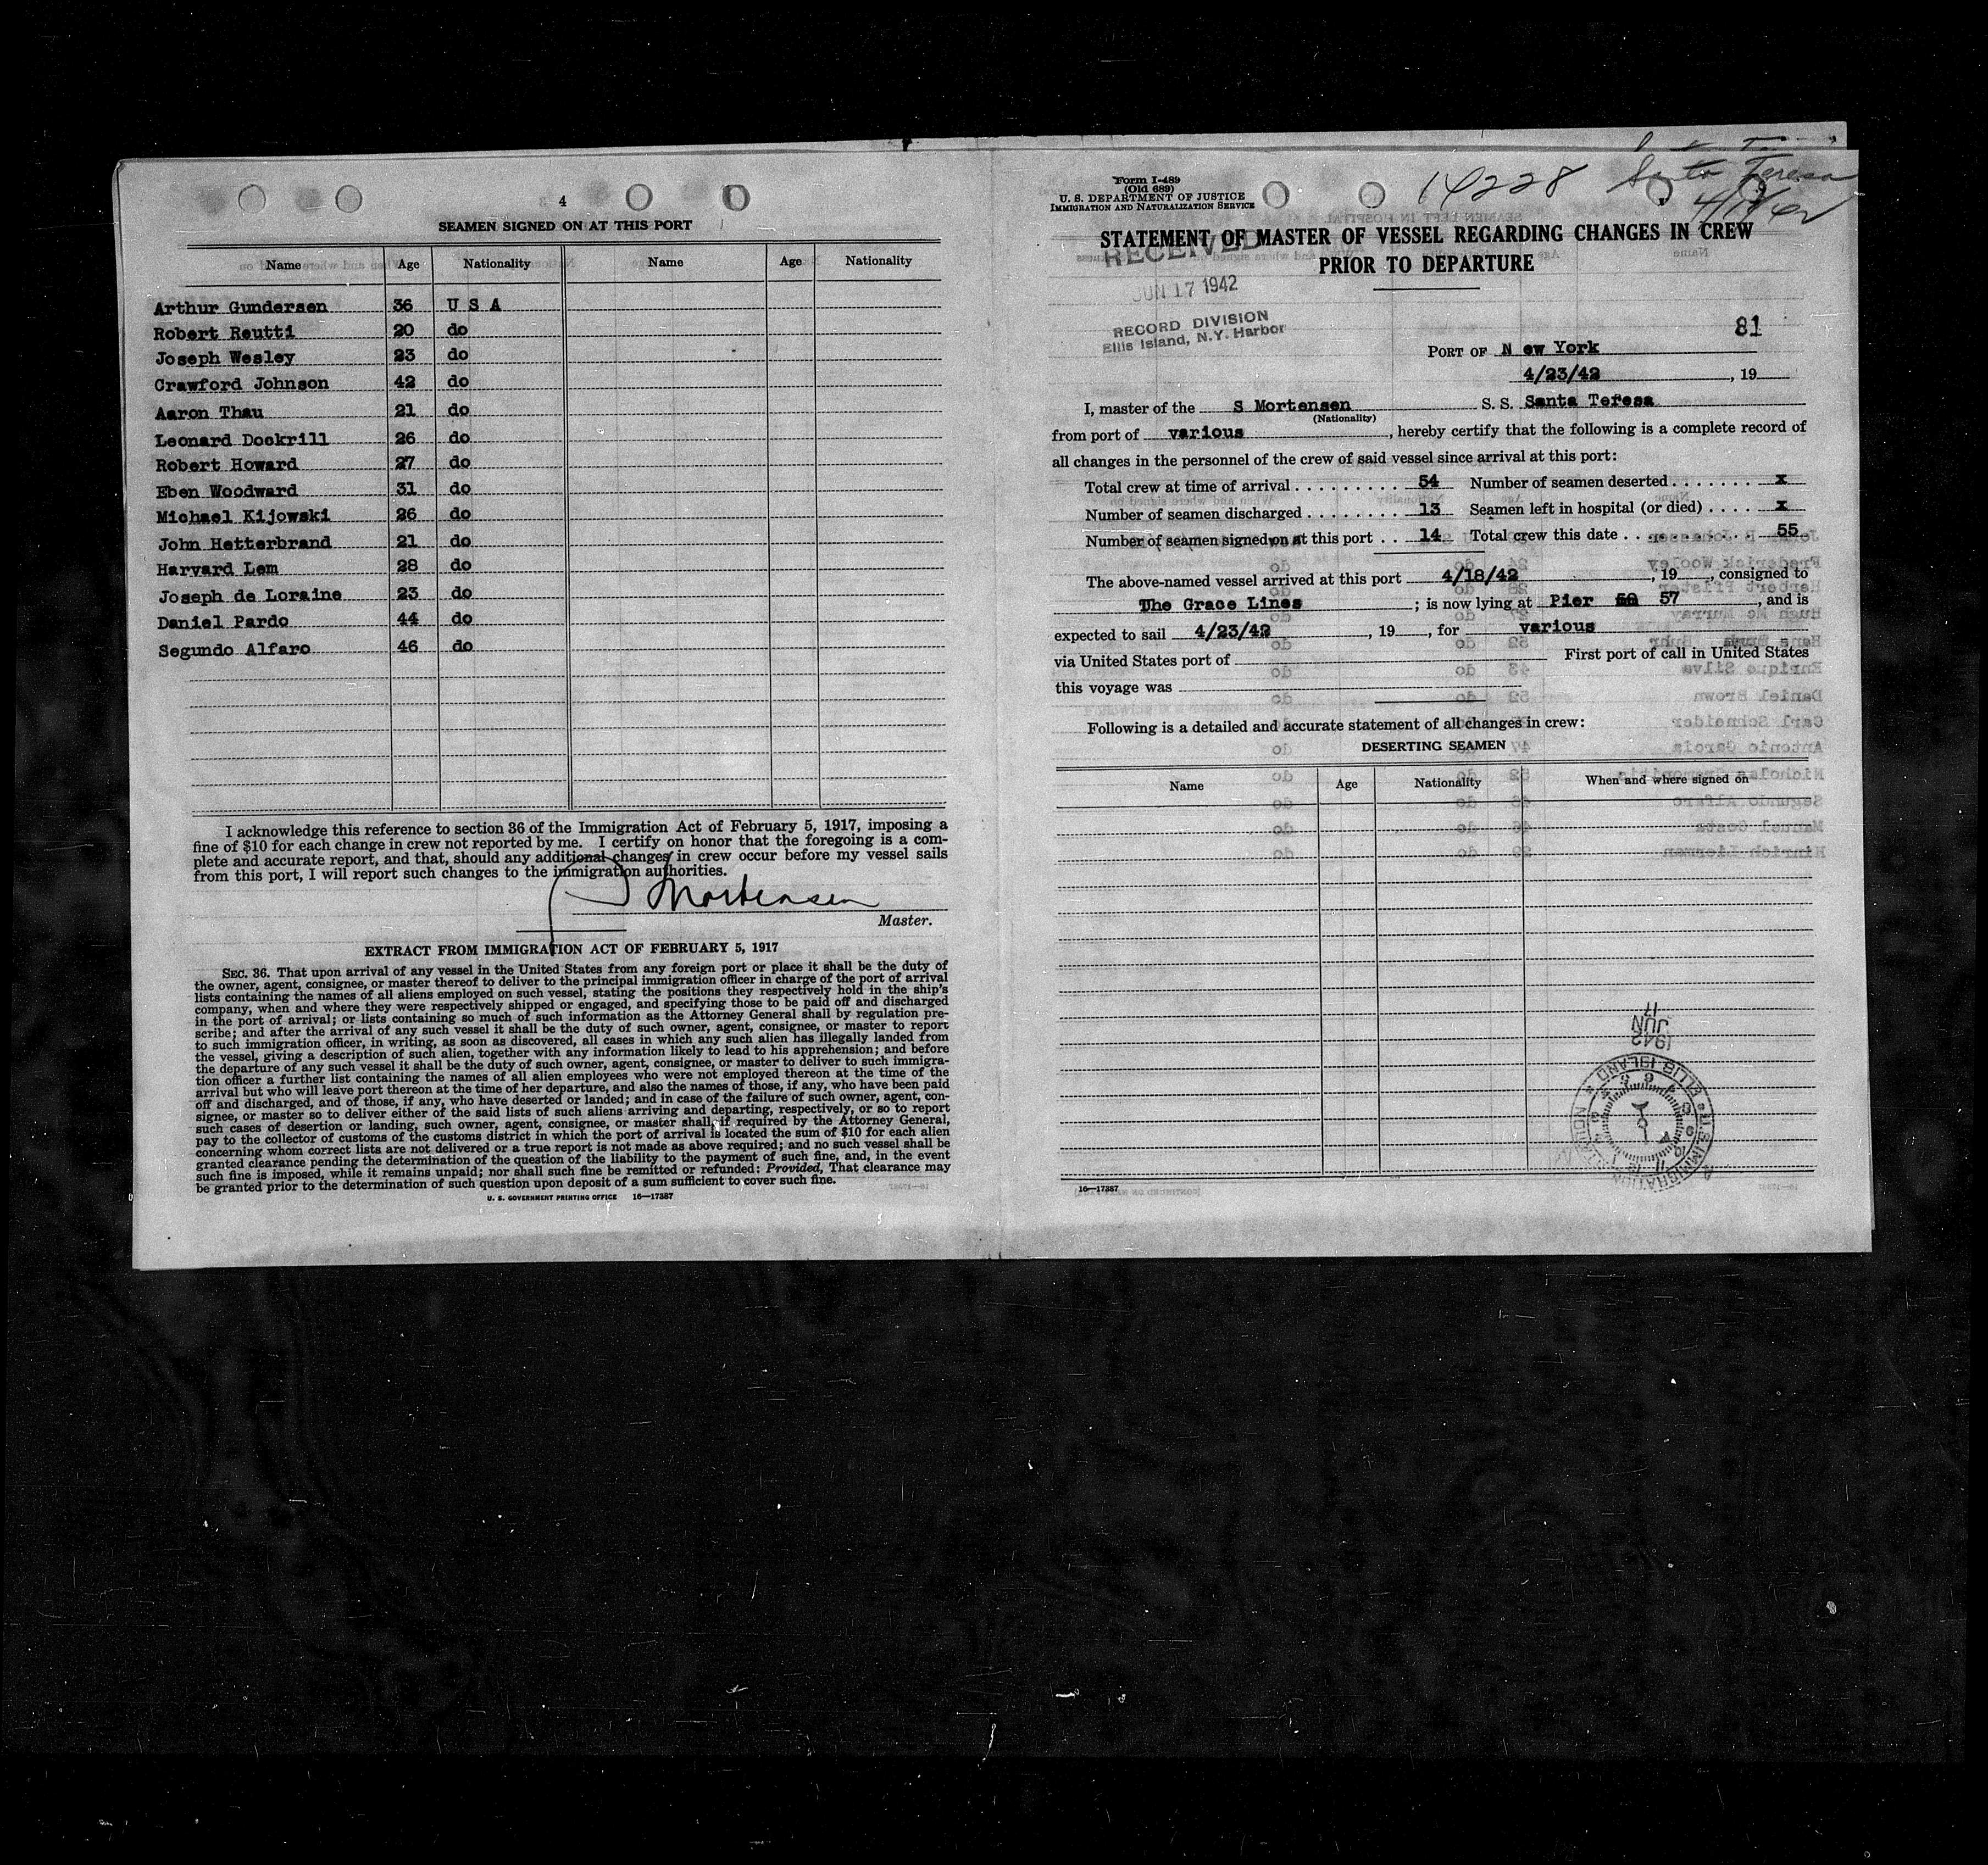 4
SEAMEN SIGNED ON AT THIS PORT
Name Age Nationality Name Age Nationality
Arthur Gundersen 36 U S A
Robert Reutti 20 do
Joseph Wesley 23 do
Crawford Johnson 42 do
Aaron Thau 21 do
Leonard Dockrill 26 do
Robert Howard 27 do
Eben Woodward 31 do
Michael Kijowski 26 do
John Hetterbrand 21 do
Harvard Lem 28 do
Joseph de Loraine 23 do
Daniel Pardo 44 do
Segundo Alfaro 46 do
I acknowledge this reference to section 36 of the Immigration Act of February 5, 1917, imposing a
fine of $10 for each change in crew not reported by me. I certify on honor that the foregoing is a com-
plete and accurate report, and that, should any additional changes in crew occur before my vessel sails
from this port, I will report such changes to the immigration authorities.
S Mortensen
Master.
EXTRACT FROM IMMIGRATION ACT OF FEBRUARY 5, 1917
SEC. 36. That upon arrival of any vessel in the United States from any foreign port or place it shall be the duty of
the owner, agent, consignee, or master thereof to deliver to the principal immigration officer in charge of the port of arrival
lists containing the names of all aliens employed on such vessel, stating the positions they respectively hold in the ship's
company, when and where they were respectively shipped or engaged, and specifying those to be paid off and discharged
in the port of arrival; or lists containing so much of such information as the Attorney General shall by regulation pre-
scribe; and after the arrival of any such vessel it shall be the duty of such owner, agent, consignee, or master to report
to such immigration officer, in writing, as soon as discovered, all cases in which any such alien has illegally landed from
the vessel, giving a description of such alien, together with any information likely to lead to his apprehension; and before
the departure of any such vessel it shall be the duty of such owner, agent, consignee, or master to deliver to such immigra-
tion officer a further list containing the names of all alien employees who were not employed thereon at the time of the
arrival but who will leave port thereon at the time of her departure, and also the names of those, if any, who have been paid
off and discharged, and of those, if any, who have deserted or landed; and in case of the failure of such owner, agent, con-
signee, or master so to deliver either of the said lists of such aliens arriving and departing, respectively, or so to report
such cases of desertion or landing, such owner, agent, consignee, or master shall, if required by the Attorney General,
pay to the collector of customs of the customs district in which the port of arrival is located the sum of $10 for each alien
concerning whom correct lists are not delivered or a true report is not made as above required; and no such vessel shall be
granted clearance pending the determination of the question of the liability to the payment of such fine, and, in the event
such fine is imposed, while it remains unpaid; nor shall such fine be remitted or refunded: Provided, That clearance may
be granted prior to the determination of such question upon deposit of a sum sufficient to cover such fine.
U. S. GOVERNMENT PRINTING OFFICE 16—17387
Form I-489
(Old 689)
U. S. DEPARTMENT OF JUSTICE
IMMIGRATION AND NATURALIZATION SERVICE
14228 Santa Teresa
STATEMENT OF MASTER OF VESSEL REGARDING CHANGES IN CREW
PRIOR TO DEPARTURE
RECEIVED
JUN 17 1942
RECORD DIVISION
Ellis Island, N.Y. Harbor
81
PORT OF N ew York
4/23/42, 19
I, master of the S Mortensen S. S. Santa Teresa
(Nationality)
from port of various, hereby certify that the following is a complete record of
all changes in the personnel of the crew of said vessel since arrival at this port:
Total crew at time of arrival . . . . . . . . . . 54 Number of seamen deserted . . . . . . . x
Number of seamen discharged . . . . . . . . 13 Seamen left in hospital (or died) . . . . x
Number of seamen signed on at this port . . 14 Total crew this date . . . . . . . . . . 55
The above-named vessel arrived at this port 4/18/42, 19, consigned to
The Grace Lines; is now lying at Pier 57, and is
expected to sail 4/23/42, 19, for various
via United States port of First port of call in United States
this voyage was
Following is a detailed and accurate statement of all changes in crew:
DESERTING SEAMEN
Name Age Nationality When and where signed on
1942
JUN
17
U.S. IMMIGRATION
ELLIS ISLAND
16—17387